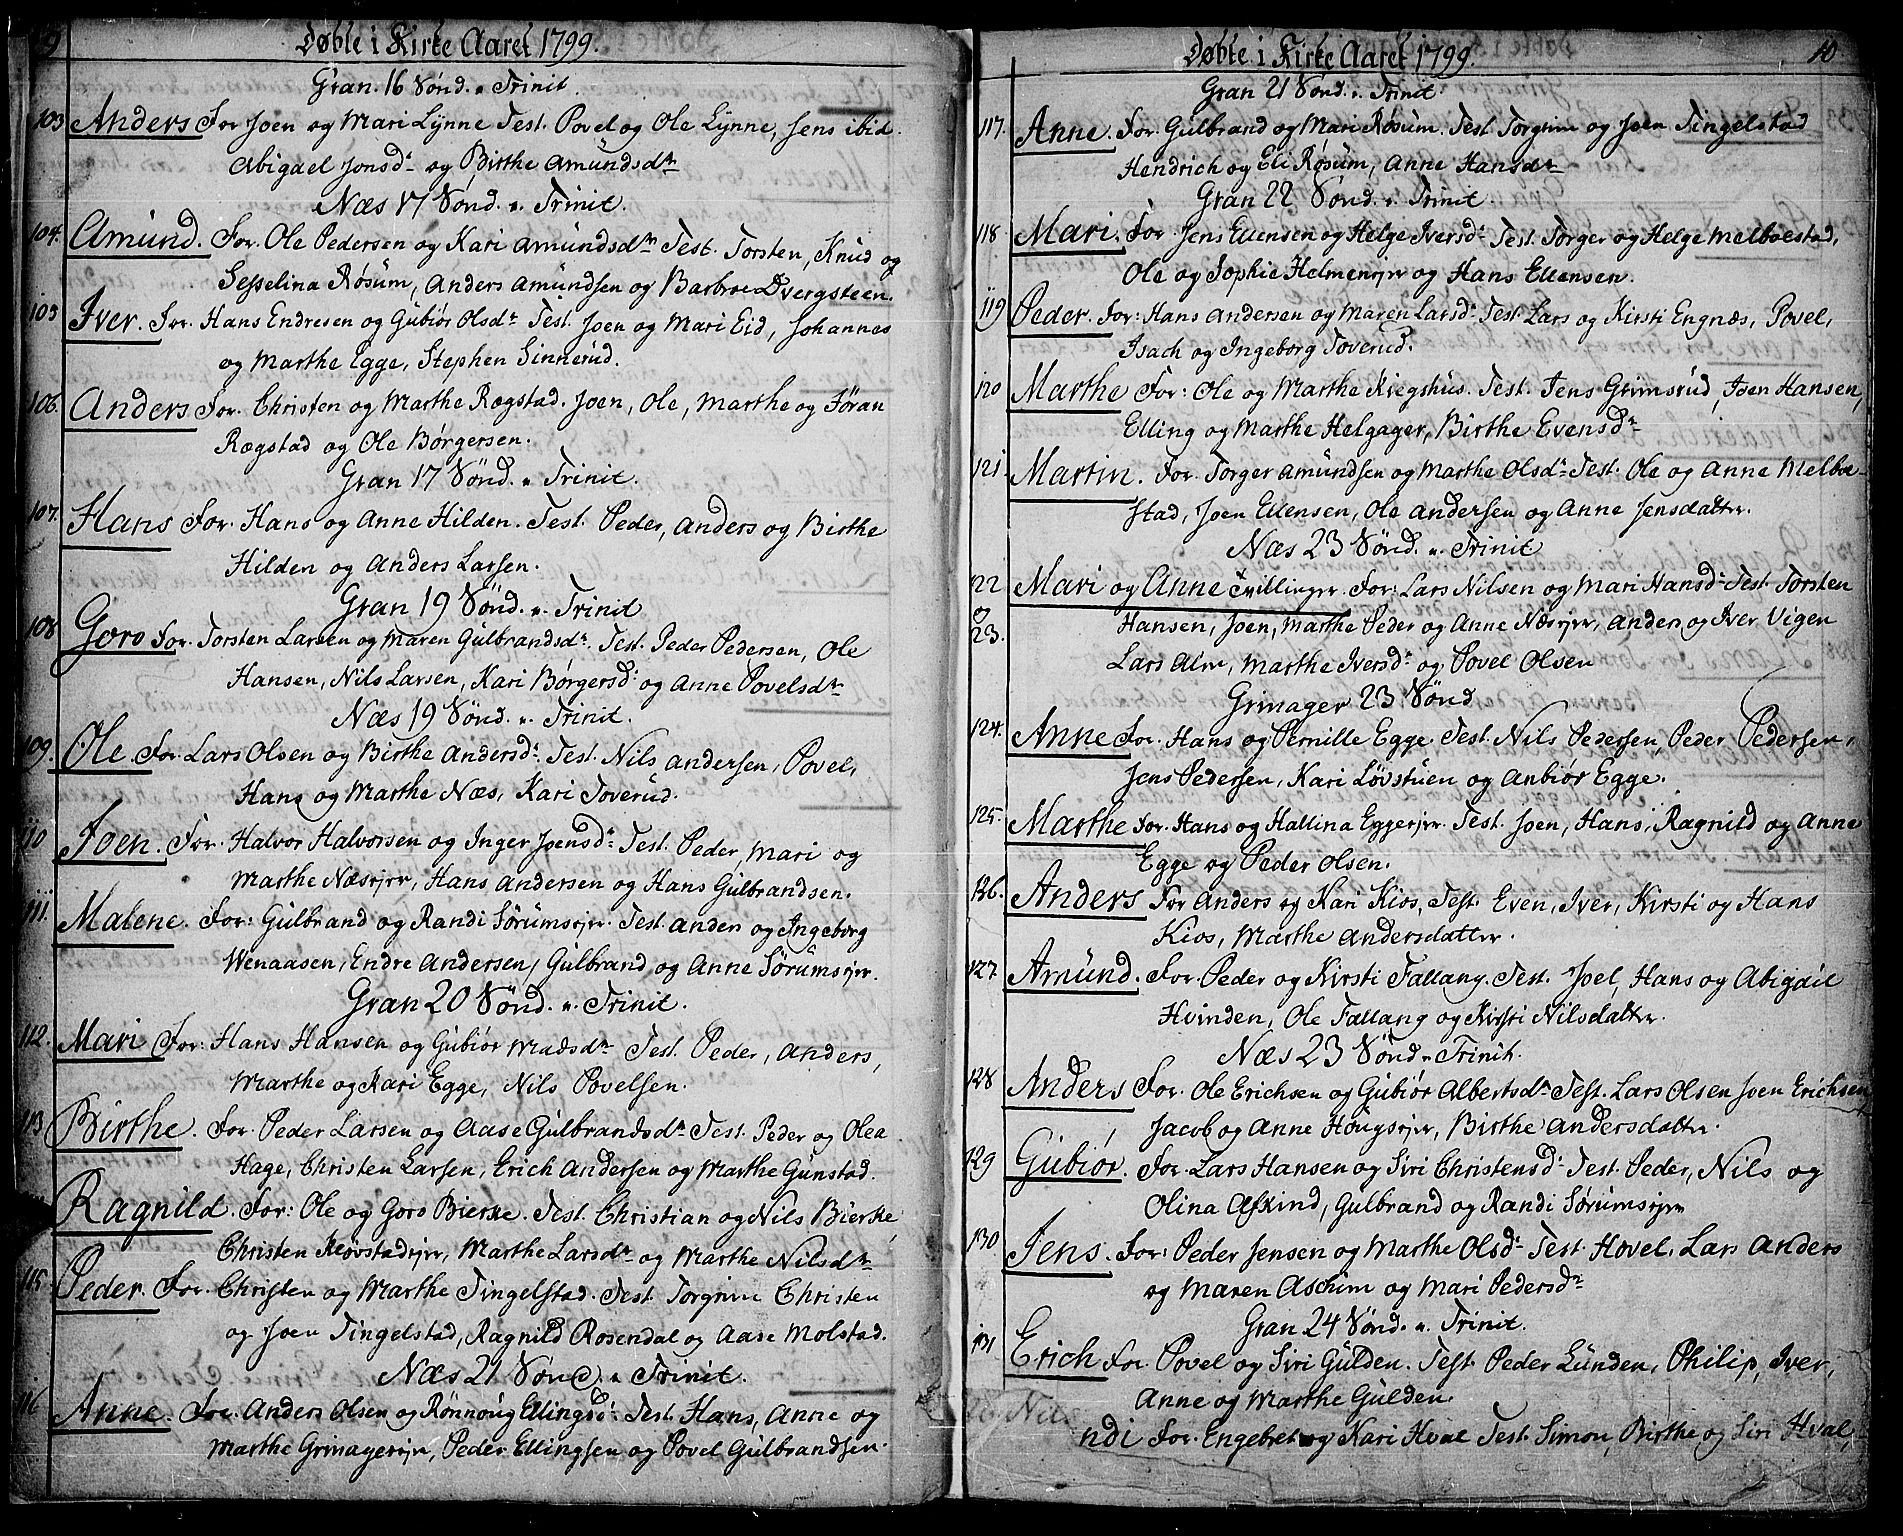 9
Døbte i Kirke Aaret 1799.
Gran. 16 Sønd. p. Trinit.
103 Anders For Joen og Mari Lynne Test. Povel og Ole Lynne, Jens ibid.
Abigael Jonsdr og Birthe Amundsdtr
Næs 17 Sønd. p. Trinit.
104. Amund. For. Ole Pedersen og Kari Amundsdtr Test. Torsten, Knud og
Sesselina Røsum, Anders Amundsen og Barbroe Dvergsteen.
105 Iver. For. Hans Endresen og Gubiør Olsdr Test. Joen og Mari Eid, Johannes
og Marthe Egge, Stephen Sinnerud.
106. Anders For. Christen og Marthe Rægstad. Joen, Ole, Marthe og Jøran
Rægstad og Ole Børgersen.
Gran 17 Sønd. p. Trinit.
107. Hans For. Hans og Anne Hilden. Test. Peder, Anders og Birthe
Hilden og Anders Larsen.
Gran 19 Sønd. p. Trinit
108 Goro For. Torsten Larsen og Maren Gulbrandsdr. Test. Peder Pedersen, Ole
Hansen, Nils Larsen, Kari Børgersdr og Anne Povelsdtr
Næs 19 Sønd. p. Trinit.
109. Ole For. Lars Olsen og Birthe Andersdr. Test. Nils Andersen, Povel,
Hans og Marthe Næs, Kari Toverud.
110 Joen. For. Halvor Halvorsen og Inger Joensdr Test. Peder, Mari og
Marthe Næsejer, Hans Andersen og Hans Gulbrandsen.
111. Malene. For: Gulbrand og Randi Sørumsejer. Test. Anders og Ingeborg
Wenaasen, Endre Andersen, Gulbrand og Anne Sørumsejer.
Gran 20 Sønd. p. Trinit.
112. Mari For: Hans Hansen og Gubiør Madsdtr Test. Peder, Anders,
Marthe og Kari Egge, Nils Povelsen.
113 Birthe. For Peder Larsen og Aase Gulbrandsdtr Test. Peder og Olea
Hage, Christen Larsen, Erich Andersen og Marthe Gunstad.
Ragnild. For: Ole og Goro Bierke. Test. Christian og Nils Bierke,
Christen Kløvstadejer, Marthe Larsdtr og Marthe Nilsdtr
115 Peder. For. Christen og Marthe Tingelstad. Test. Torgrim Christen
og Joen Tingelstad, Ragnild Rosendal og Aase Molstad.
Næs 21 Sønd. p. Trinit.
116 Anne. For. Anders Olsen og Rønnoug Ellingsdr Test. Hans, Anne og
Marthe Grinagerejer, Peder Ellingsen og Povel Gulbrandsen.
10
Døbte i Kirke Aaret 1799.
Gran 21 Sønd. p. Trinit
117. Anne. For. Gulbrand og Mari Røsum. Test. Torgrim og Joen Tingelstad
Hendrich og Eli Røsum, Anne Hansdtr
Gran 22 Sønd. p. Trinit.
118 Mari. For Jens Ellensen og Helge Iversdr Test. Torger og Helge Melboestad,
Ole og Sophie Helmenejer og Hans Ellensen.
119 Peder. For: Hans Andersen og Maren Larsdr Test. Lars og Kirsti Engnæs, Povel,
Isach og Ingeborg Toverud.
120 Marthe For: Ole og Marthe Kiegshus. Test. Jens Grimsrud, Joen Hansen,
Elling og Marthe Helgager, Birthe Evensdtr
121. Martin. For. Torger Amundsen og Marthe Olsdr Test. Ole og Anne Melboe-
stad, Joen Ellensen, Ole Andersen og Anne Jensdatter.
Næs 23 Sønd. p. Trinit
122 Mari og Anne Tvillinger For: Lars Nilsen og Mari Hansdr Test. Torsten
og Hansen, Joen, Marthe Peder og Anne Næsejer, Anders og Iver Vigen
23. Lars Alm, Marthe Iversdr og Povel Olsen
Grinager 23 Sønd
124. Anne For. Hans og Pernille Egge. Test. Nils Pedersen, Peder Pedersen,
Jens Pedersen, Kari Løvstuen og Anbiør Egge.
125. Marthe For. Hans og Hallina Eggeejer. Test. Joen, Hans, Ragnild og Anne
Egge og Peder Olsen.
126. Anders For Anders og Kari Kios, Test. Even, Iver, Kirsti og Hans
Kios, Marthe Andersdatter.
127. Amund. For Peder og Kirsti Fallang. Test. Joel, Hans og Abigail
Hvinden, Ole Fallang og Kirsti Nilsdatter.
Næs 23 Sønd p Trinit.
128 Anders For. Ole Erichsen og Gubiør Albertsdtr Test. Lars Olsen Joen Erichsen,
Jacob og Anne Hougsejer, Birthe Andersdatter.
129 Gubiør. For. Lars Hansen og Siri Christensdr Test. Peder, Nils og
Olina Askind, Gulbrand og Randi Sørumsejer
130 Jens. For: Peder Jensen og Marthe Olsdr Test. Hovel, Lars Anders
og Maren Aschim og Mari Pedersdtr
Gran 24 Sønd. p. Trinit.
131 Erich For Povel og Siri Gulden. Test. Peder Lunden, Philip, Iver,
Anne og Marthe Gulden.
ndi For. Engebret og Kari Hval Test. Simon, Birthe og Siri Hval,